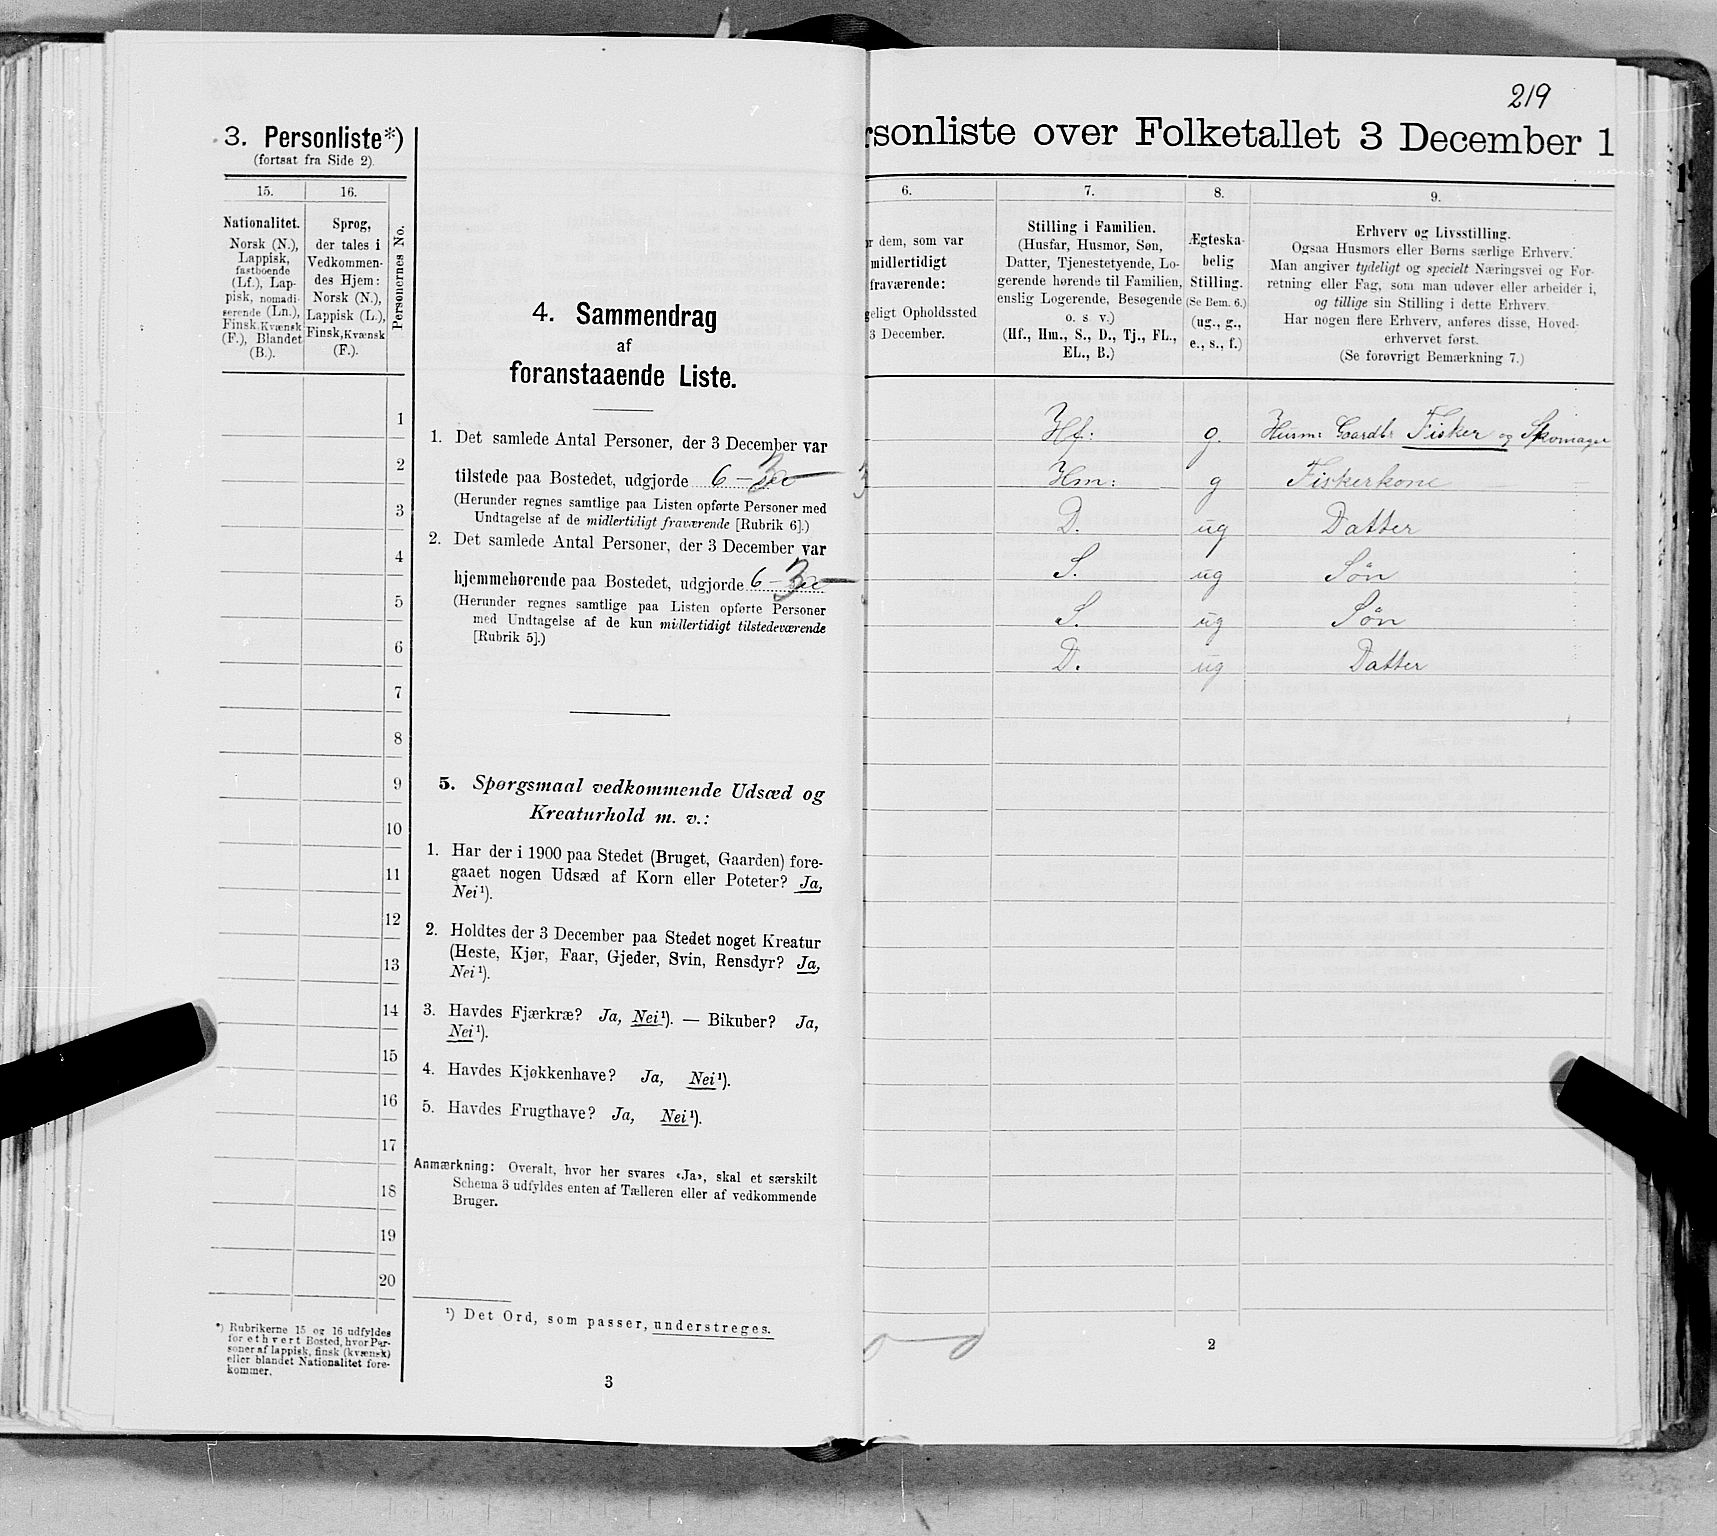 3. Personliste*)
(fortsat fra Side 2).
15.
16.
Personernes No.
Nationalitet.
Norsk (N.),
Lappisk,
fastboende
(Lf.), Lap-
pisk, nomadi-
serende (Ln.),
Finsk, Kvænsk
(F.), Blandet
(B.).
Sprog,
der tales i
Vedkommen-
des Hjem:
Norsk (N.),
Lappisk (L.),
Finsk, Kvænsk
(F.).
1
2
3
4
5
6
7
8
9
10
11
12
13
14
15
16
17
18
19
20
*) Rubrikerne 15 og 16 udfyldes
for ethvert Bosted, hvor Per-
soner af lappisk, finsk (kvænsk)
eller blandet Nationalitet fore-
kommer.
4. Sammendrag
af
foranstaaende Liste.
1. Det samlede Antal Personer, der 3 December var
tilstede paa Bostedet, udgjorde 6 –
(Herunder regnes samtlige paa Listen opførte Personer med
Undtagelse af de midlertidigt fraværende [Rubrik 6].)
2. Det samlede Antal Personer, der 3 December var
hjemmehørende paa Bostedet, udgjorde 6 –
(Herunder regnes samtlige paa Listen opførte Personer
med Undtagelse af de kun midlertidigt tilstedeværende
[Rubrik 5].)
5. Spørgsmaal vedkommende Udsæd og
Kreaturhold m. v.:
1. Har der i 1900 paa Stedet (Bruget, Gaarden) fore-
gaaet nogen Udsæd af Korn eller Poteter? Ja,
Nei¹).
2. Holdtes der 3 December paa Stedet noget Kreatur
(Heste, Kjør, Faar, Gjeder, Svin, Rensdyr? Ja,
Nei¹).
3. Havdes Fjærkræ? Ja, Nei¹). — Bikuber? Ja,
Nei¹).
4. Havdes Kjøkkenhave? Ja, Nei¹).
5. Havdes Frugthave? Ja, Nei¹).
Anmærkning: Overalt, hvor her svares «Ja», skal et særskilt
Schema 3 udfyldes enten af Tælleren eller af vedkommende
Bruger.
¹) Det Ord, som passer, understreges.
3
219
rsonliste over Folketallet 3 December 1
6.
7.
8.
9.
r dem, som var
midlertidigt
fraværende:
geligt Opholdssted
3 December.
Stilling i Familien.
(Husfar, Husmor, Søn,
Datter, Tjenestetyende, Lo-
gerende hørende til Familien,
enslig Logerende, Besøgende
o. s. v.)
(Hf., Hm., S., D., Tj., FL.,
EL., B.)
Ægteska-
belig
Stilling.
(Se Bem. 6.)
(ug., g.,
e., s., f.)
Erhverv og Livsstilling.
Ogsaa Husmors eller Børns særlige Erhverv.
Man angiver tydeligt og specielt Næringsvei og For-
retning eller Fag, som man udøver eller arbeider i,
og tillige sin Stilling i dette Erhverv.
Har nogen flere Erhverv, anføres disse, Hoved-
erhvervet først.
(Se forøvrigt Bemærkning 7.)
Hf: g. Husm: Gaardbr Fisker og Skomager
Hm: g Fiskerkone
D. ug Datter
S. ug Søn
S. ug Søn
D. ug Datter
2